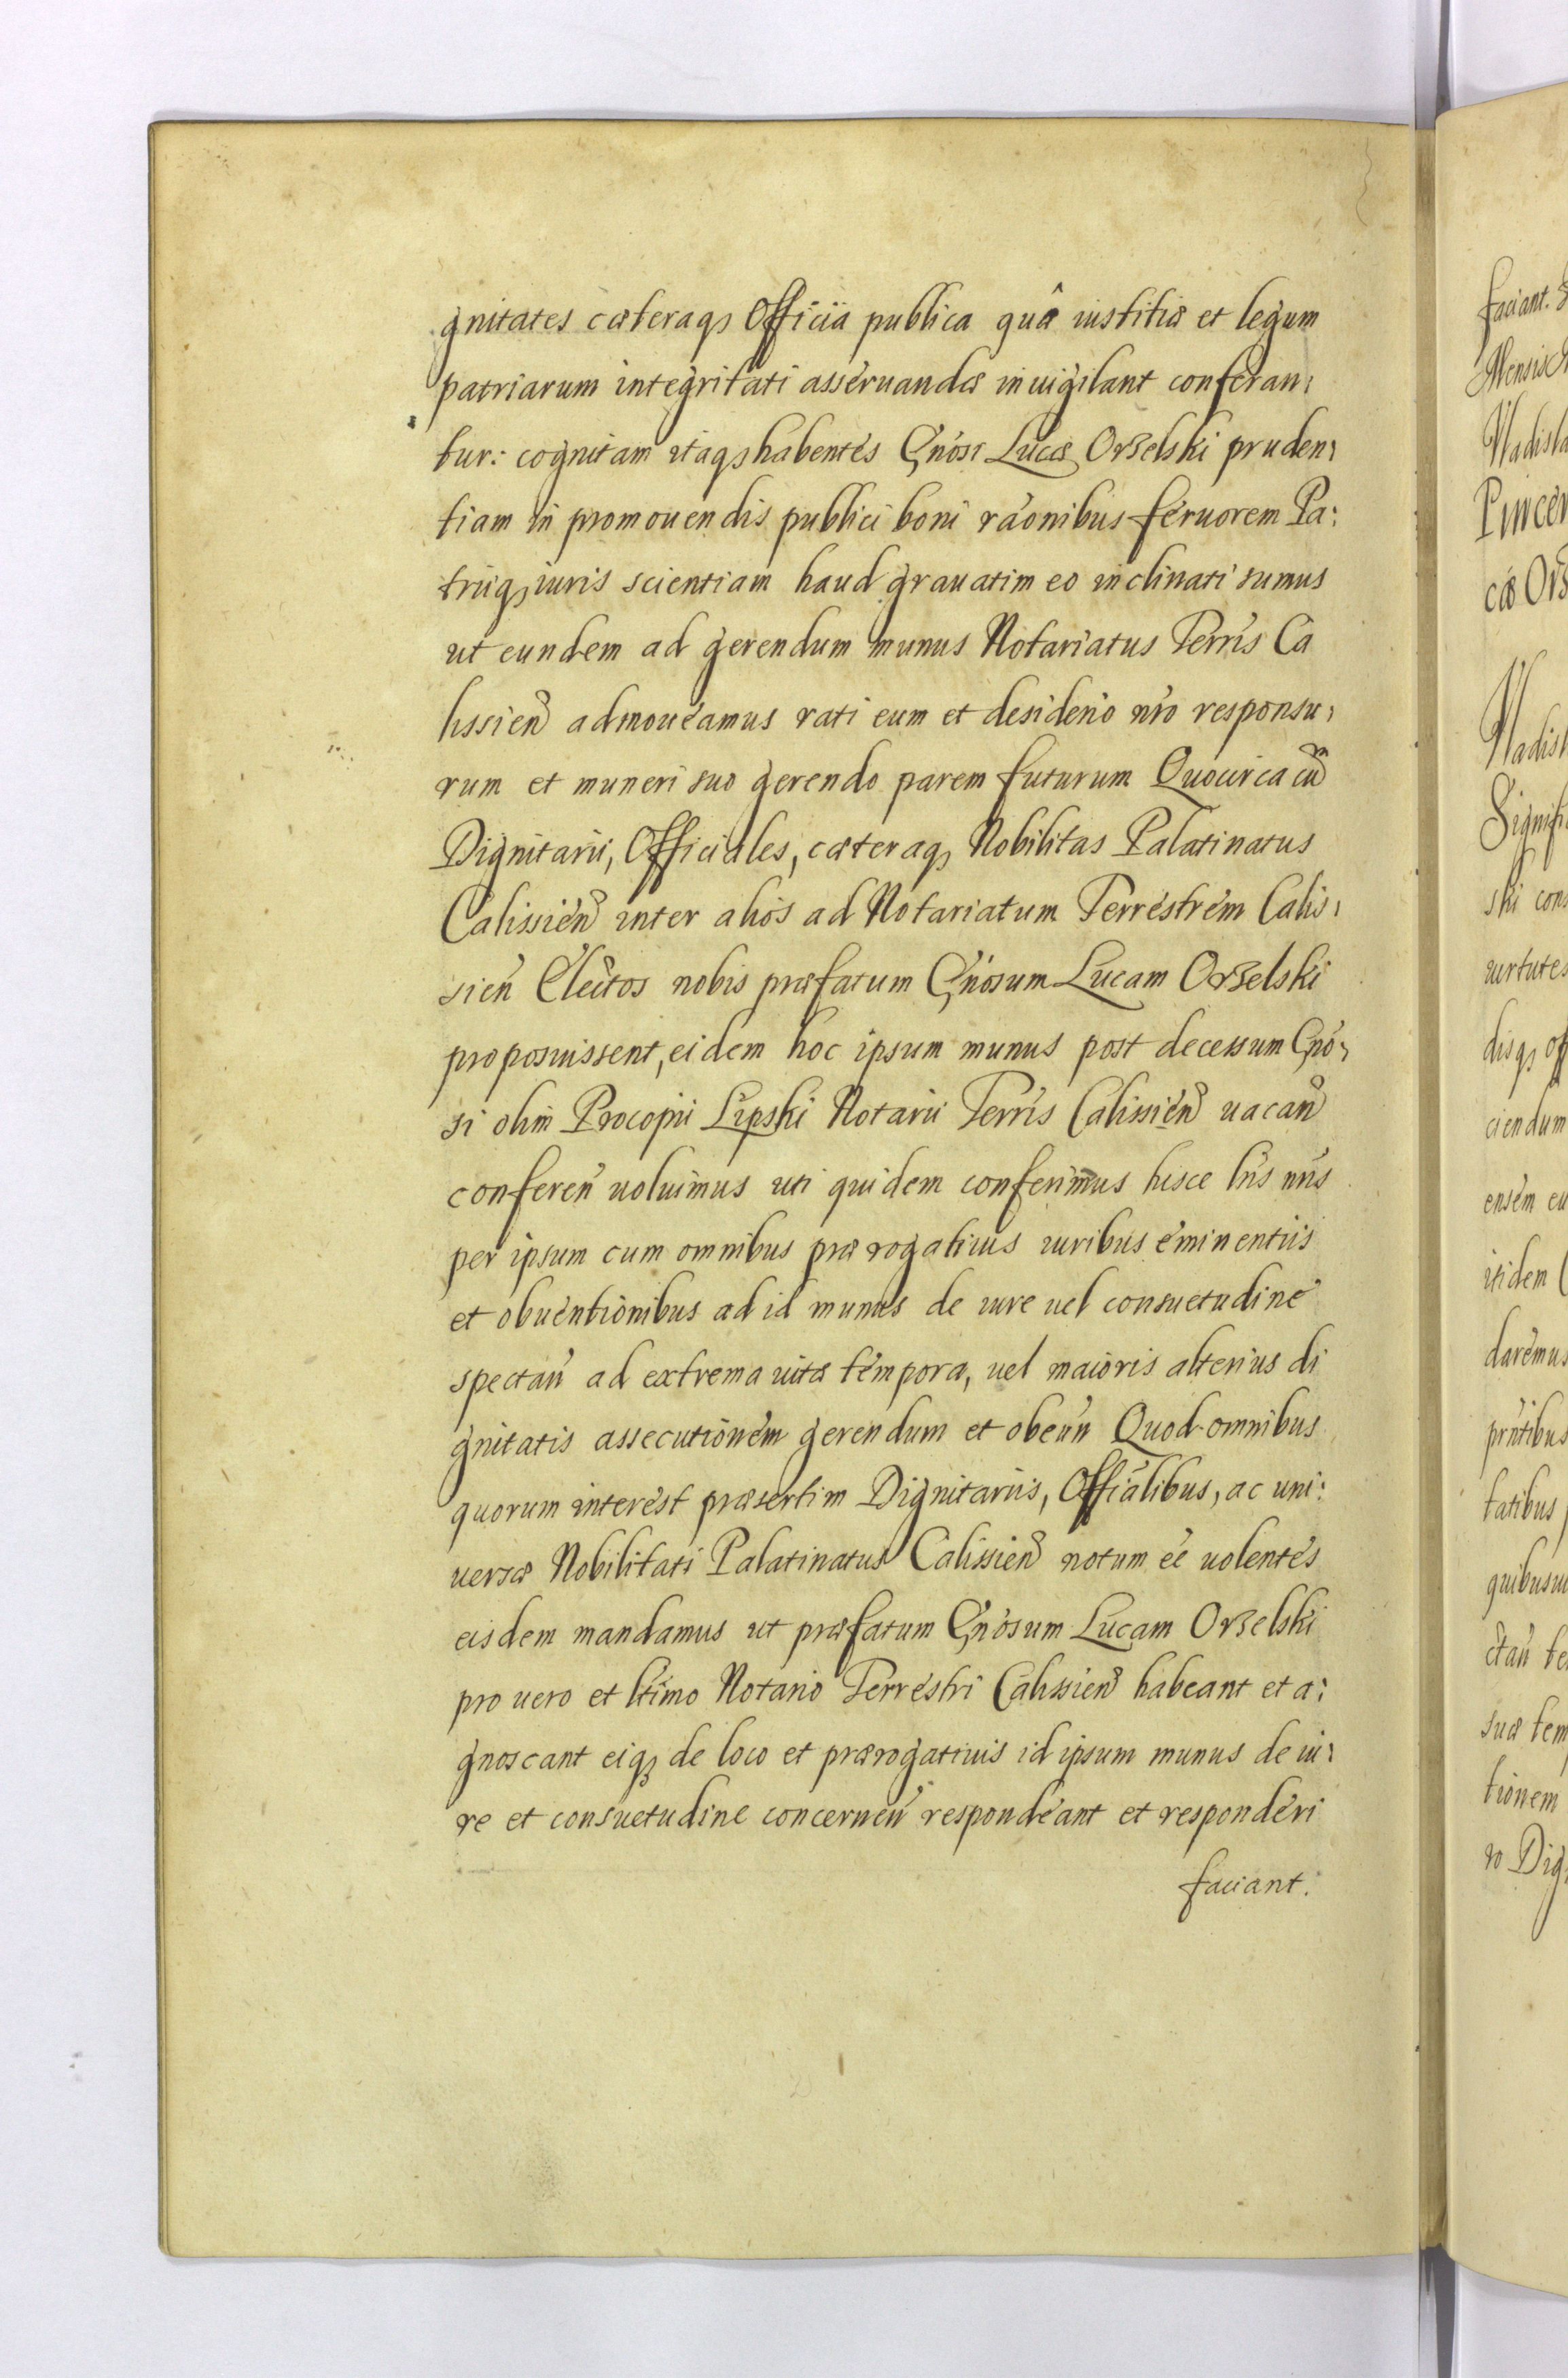 gnitates cæteraqꝫ Officia publica quâ iustitiæ et legum
patriarum integritati asseruandæ inuigilant conferan:
tur: cognitam itaqꝫ habentes Gnósi Lucæ Orzelski pruden:
tiam in promouendis publici boni raonibus feruorem Pa:
triiqꝫ iuris scientiam haud grauatim eo inclinati sumus
ut eundem ad gerendum munus Notariatus Terris Ca
lissien̄ admoueamus rati eum et desiderio nr̄o responsu:
rum et muneri suo gerendo parem futurum Quocirca cū
Dignitarii, Officiales, cæteraqꝫ Nobilitas Palatinatus
Calissien̄ inter alios ad Notariatum Terrestrem Calis:
sien̄ Electos nobis præfatum Gnósum Lucam Orzelski
proposuissent, eidem hoc ipsum munus post decessum Gnó:
si olim Procopii Lipski Notarii Terris Calissien̄ uacan̄
conferen̄ uoluimus uti quidem conferimus hisce lr̄is nr̄is
per ipsum cum omnibus prærogatiuis iuribus eminentiis
et obuentionibus ad id munus de iure uel consuetudine
spectan̄ ad extrema uitæ tempora, uel maioris alterius di
gnitatis assecutionem gerendum et obeun̄ Quod omnibus
quorum interest præsertim Dignitariis, Offiālibus, ac uni:
uersæ Nobilitati Palatinatus Calissien̄ notum eē uolentes
eisdem mandamus ut præfatum Gnósum Lucam Orzelski
pro uero et ltīmo Notario Terrestri Calissien̄ habeant et a:
gnoscant eiqꝫ de loco et prærogatiuis id ipsum munus de iu:
re et consuetudine concernen̄ respondeant et responderi
faciant.